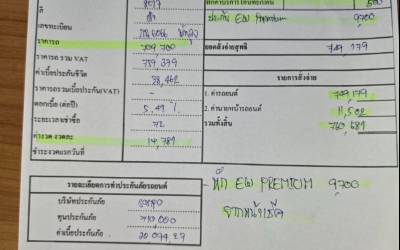 สี ดำ
500
ประกัน EW Premium 9,700
เลขทะเบียน
ราคารถ 709,700
ยอดจัดเช่าสุทธิ 749,179
ราคารถ รวม VAT 759,379
ค่าเบี้ยประกันชีวิต 38,462
รายการสั่งจ่าย
ราคารถรวมเบี้ยประกัน(VAT) -
ดอกเบี้ย (ต่อปี) 5.49 %
1. ค่ารถยนต์ 749,179
ระยะเวลาเช่าซื้อ 72
2. ค่านายหน้ารถยนต์ 11,502
ค่างวด งวดละ 14,789
รวมทั้งสิ้น 760,681
ชำระงวดแรกวันที่
รายละเอียดการทำประกันภัยรถยนต์
- หัก EW PREMIUM 9,700
จากหน้าเช็ค
บริษัทประกันภัย
ทุนประกันภัย 710,000
ค่าเบี้ยประกันภัย 20,094.29